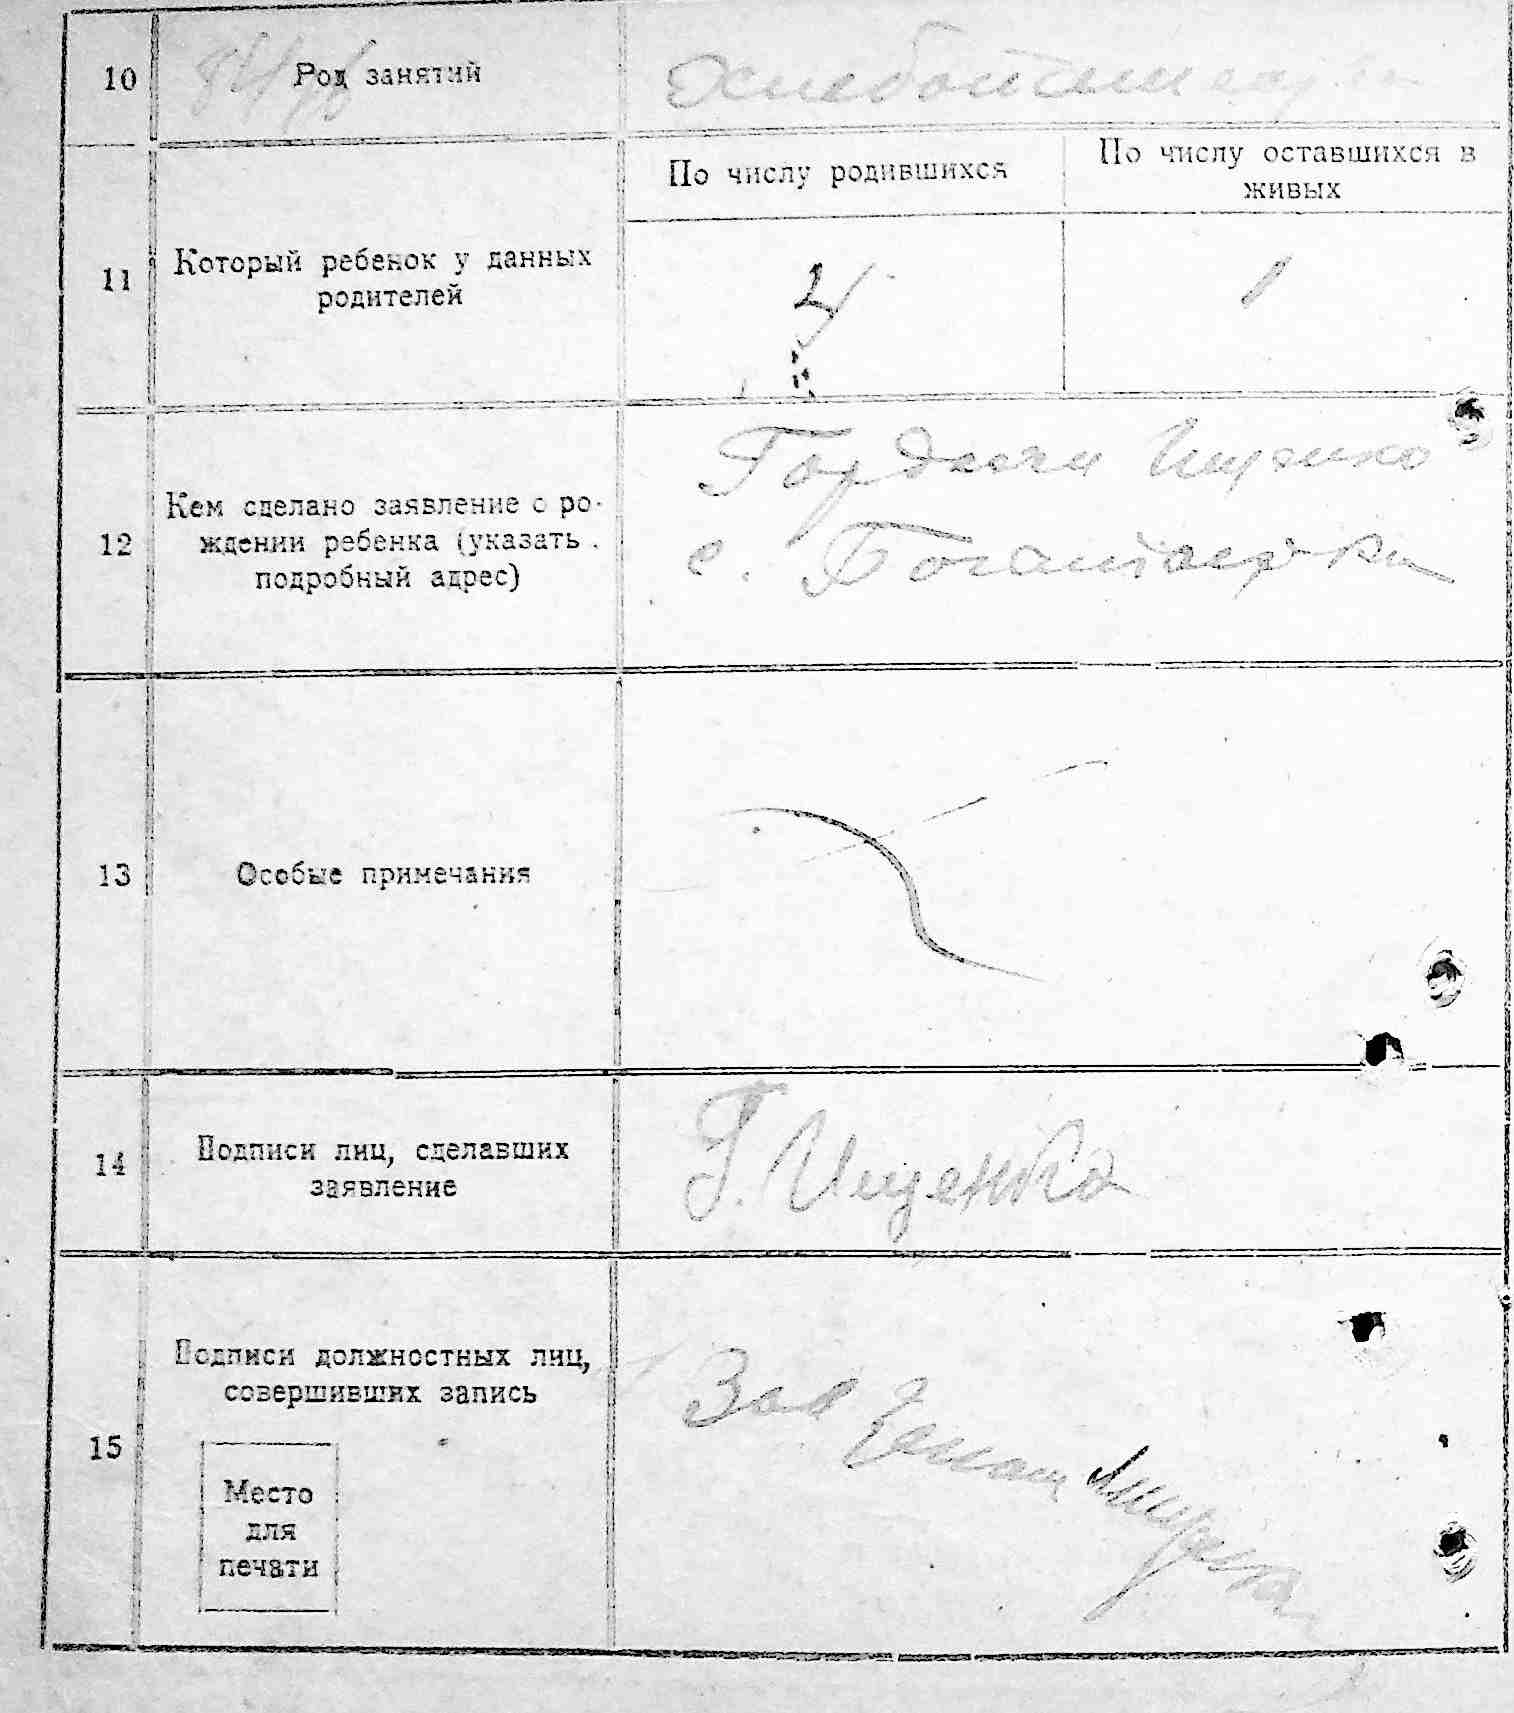 10 Род занятий
По числу родившихся
По числу оставшихся в
живых
11 Который ребенок у данных
родителей
4
1
12 Кем сделано заявление о ро-
ждении ребенка (указать
подробный адрес)
Ищенко
с.
13 Особые примечания
14 Подписи лиц, сделавших
заявление
Г. Ищенко
15 Подписи должностных лиц,
совершивших запись
Зав
Место
для
печати